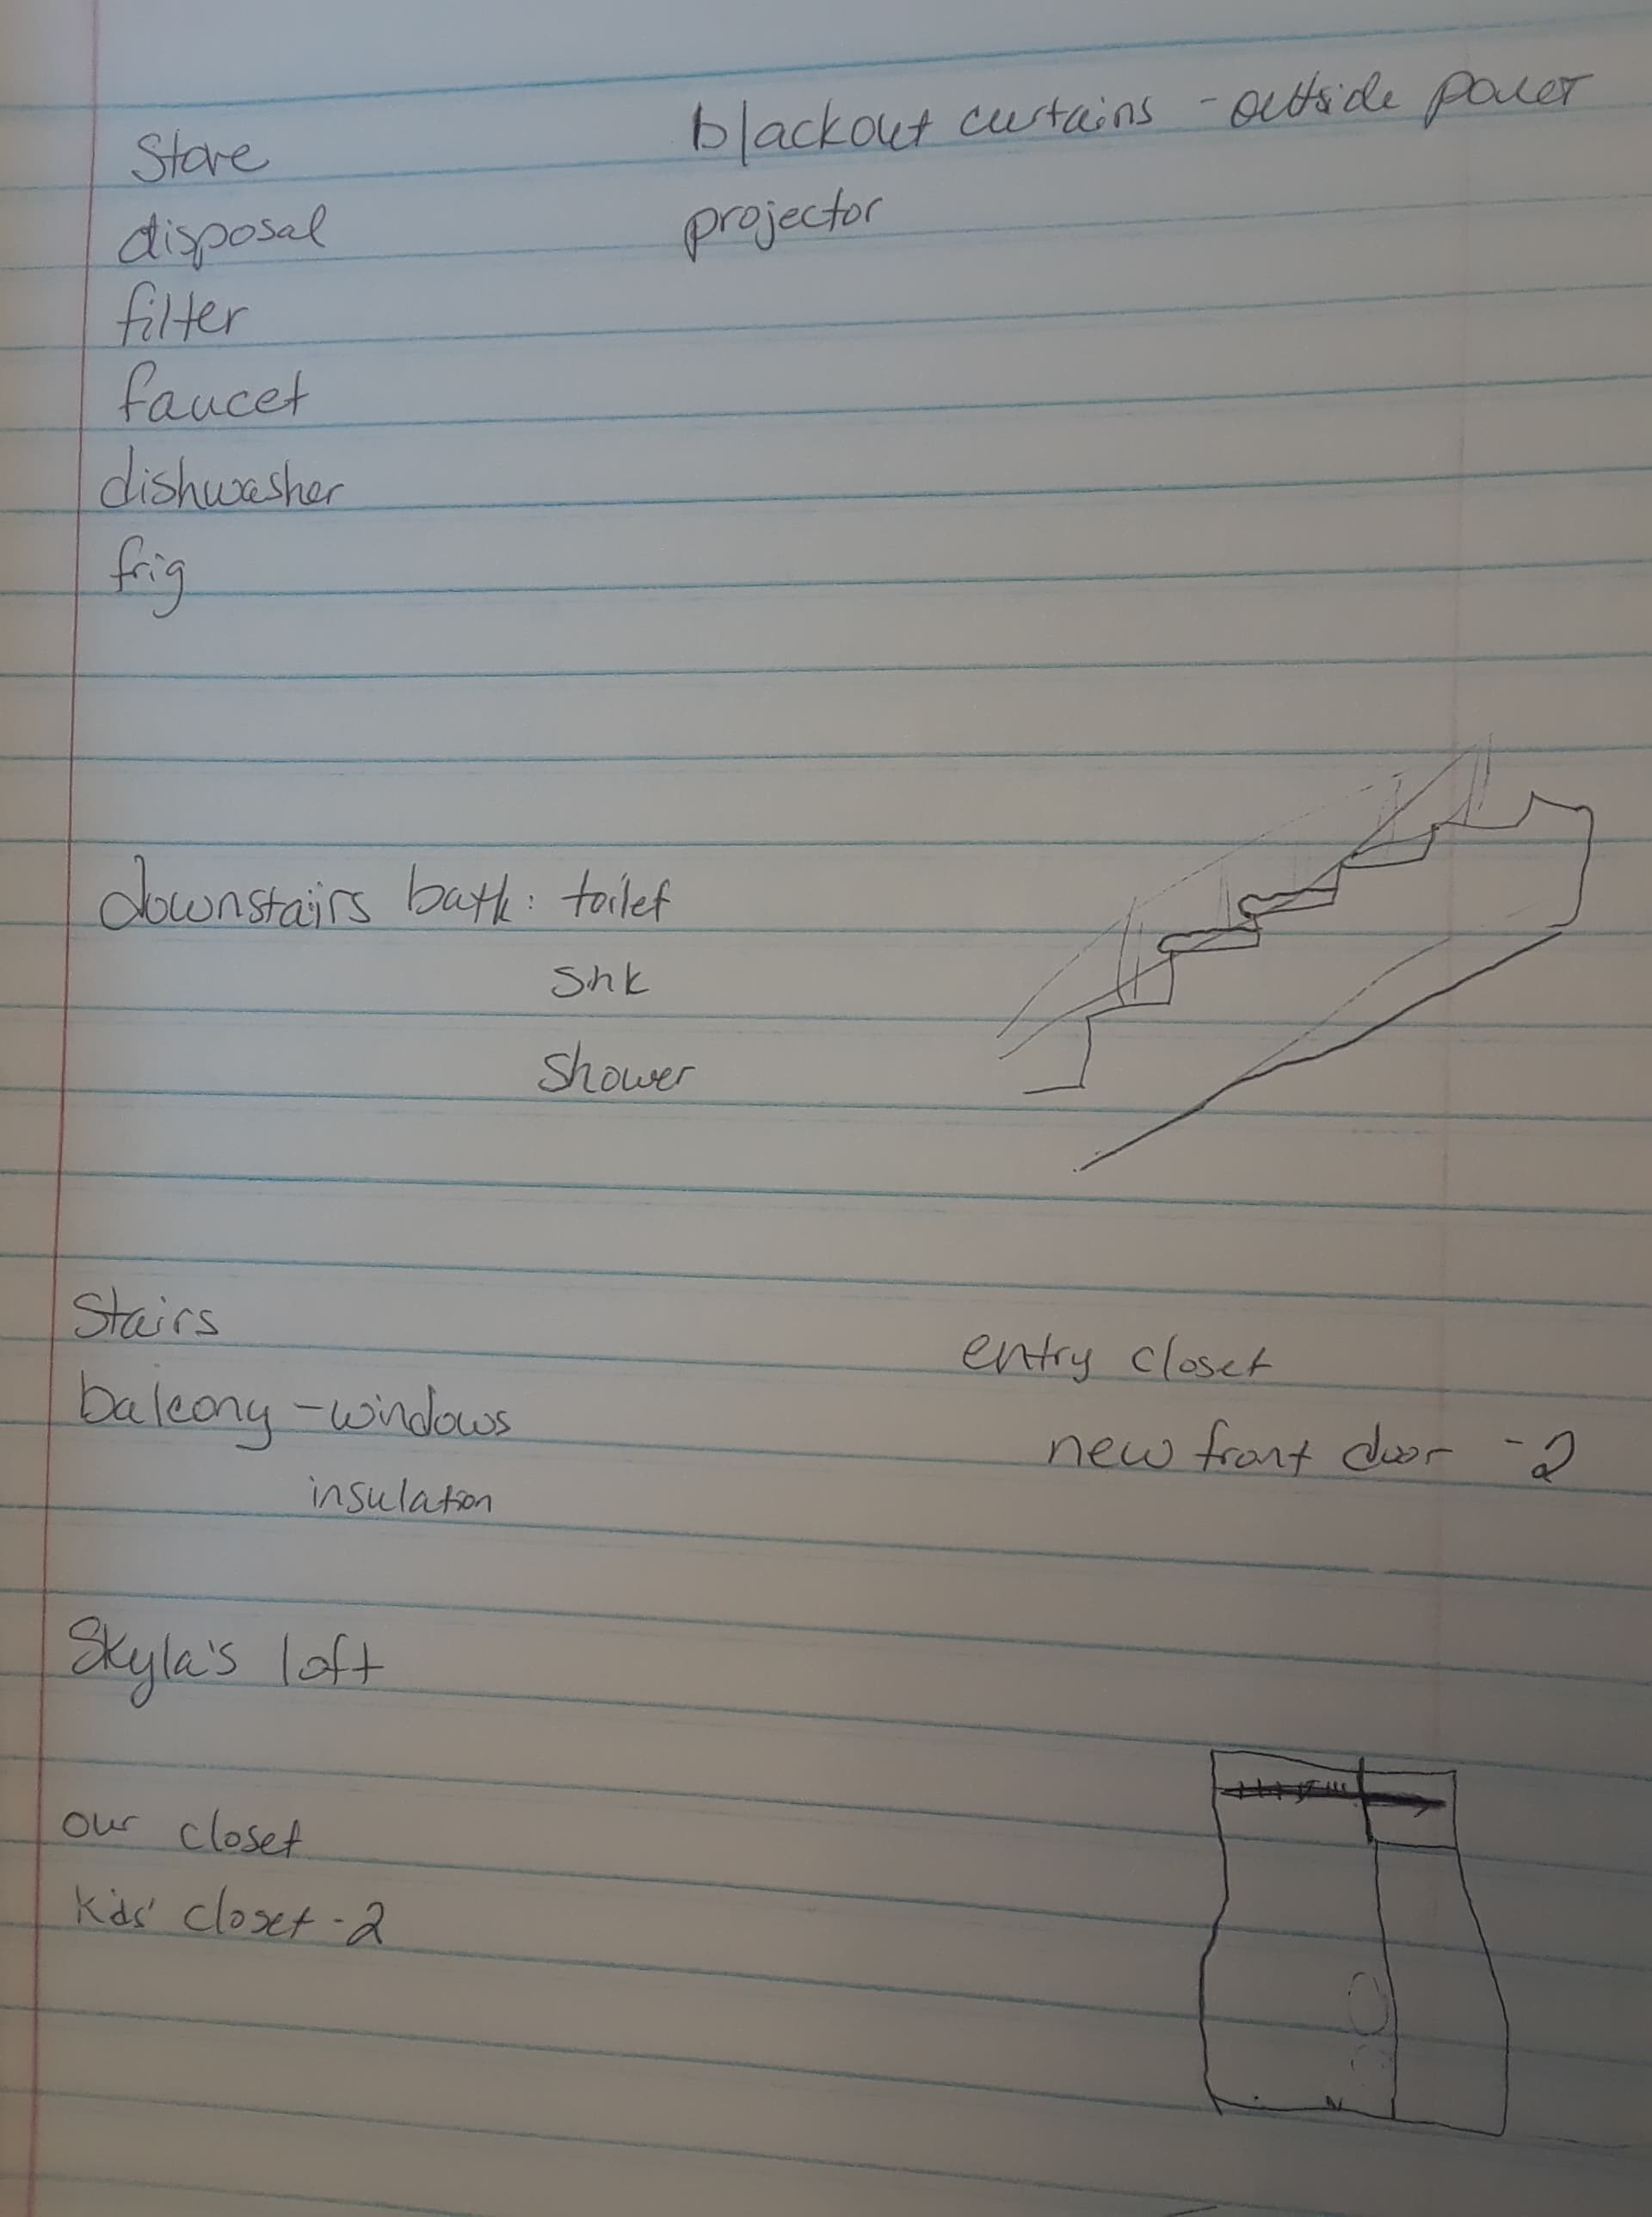 Stove
disposal
filter
faucet
dishwasher
frig
blackout curtains - outside power
projector
downstairs bath: toilet
sink
shower
Stairs
balcony - windows
insulation
entry closet
new front door - 2
Skyla's loft
our closet
kids' closet - 2